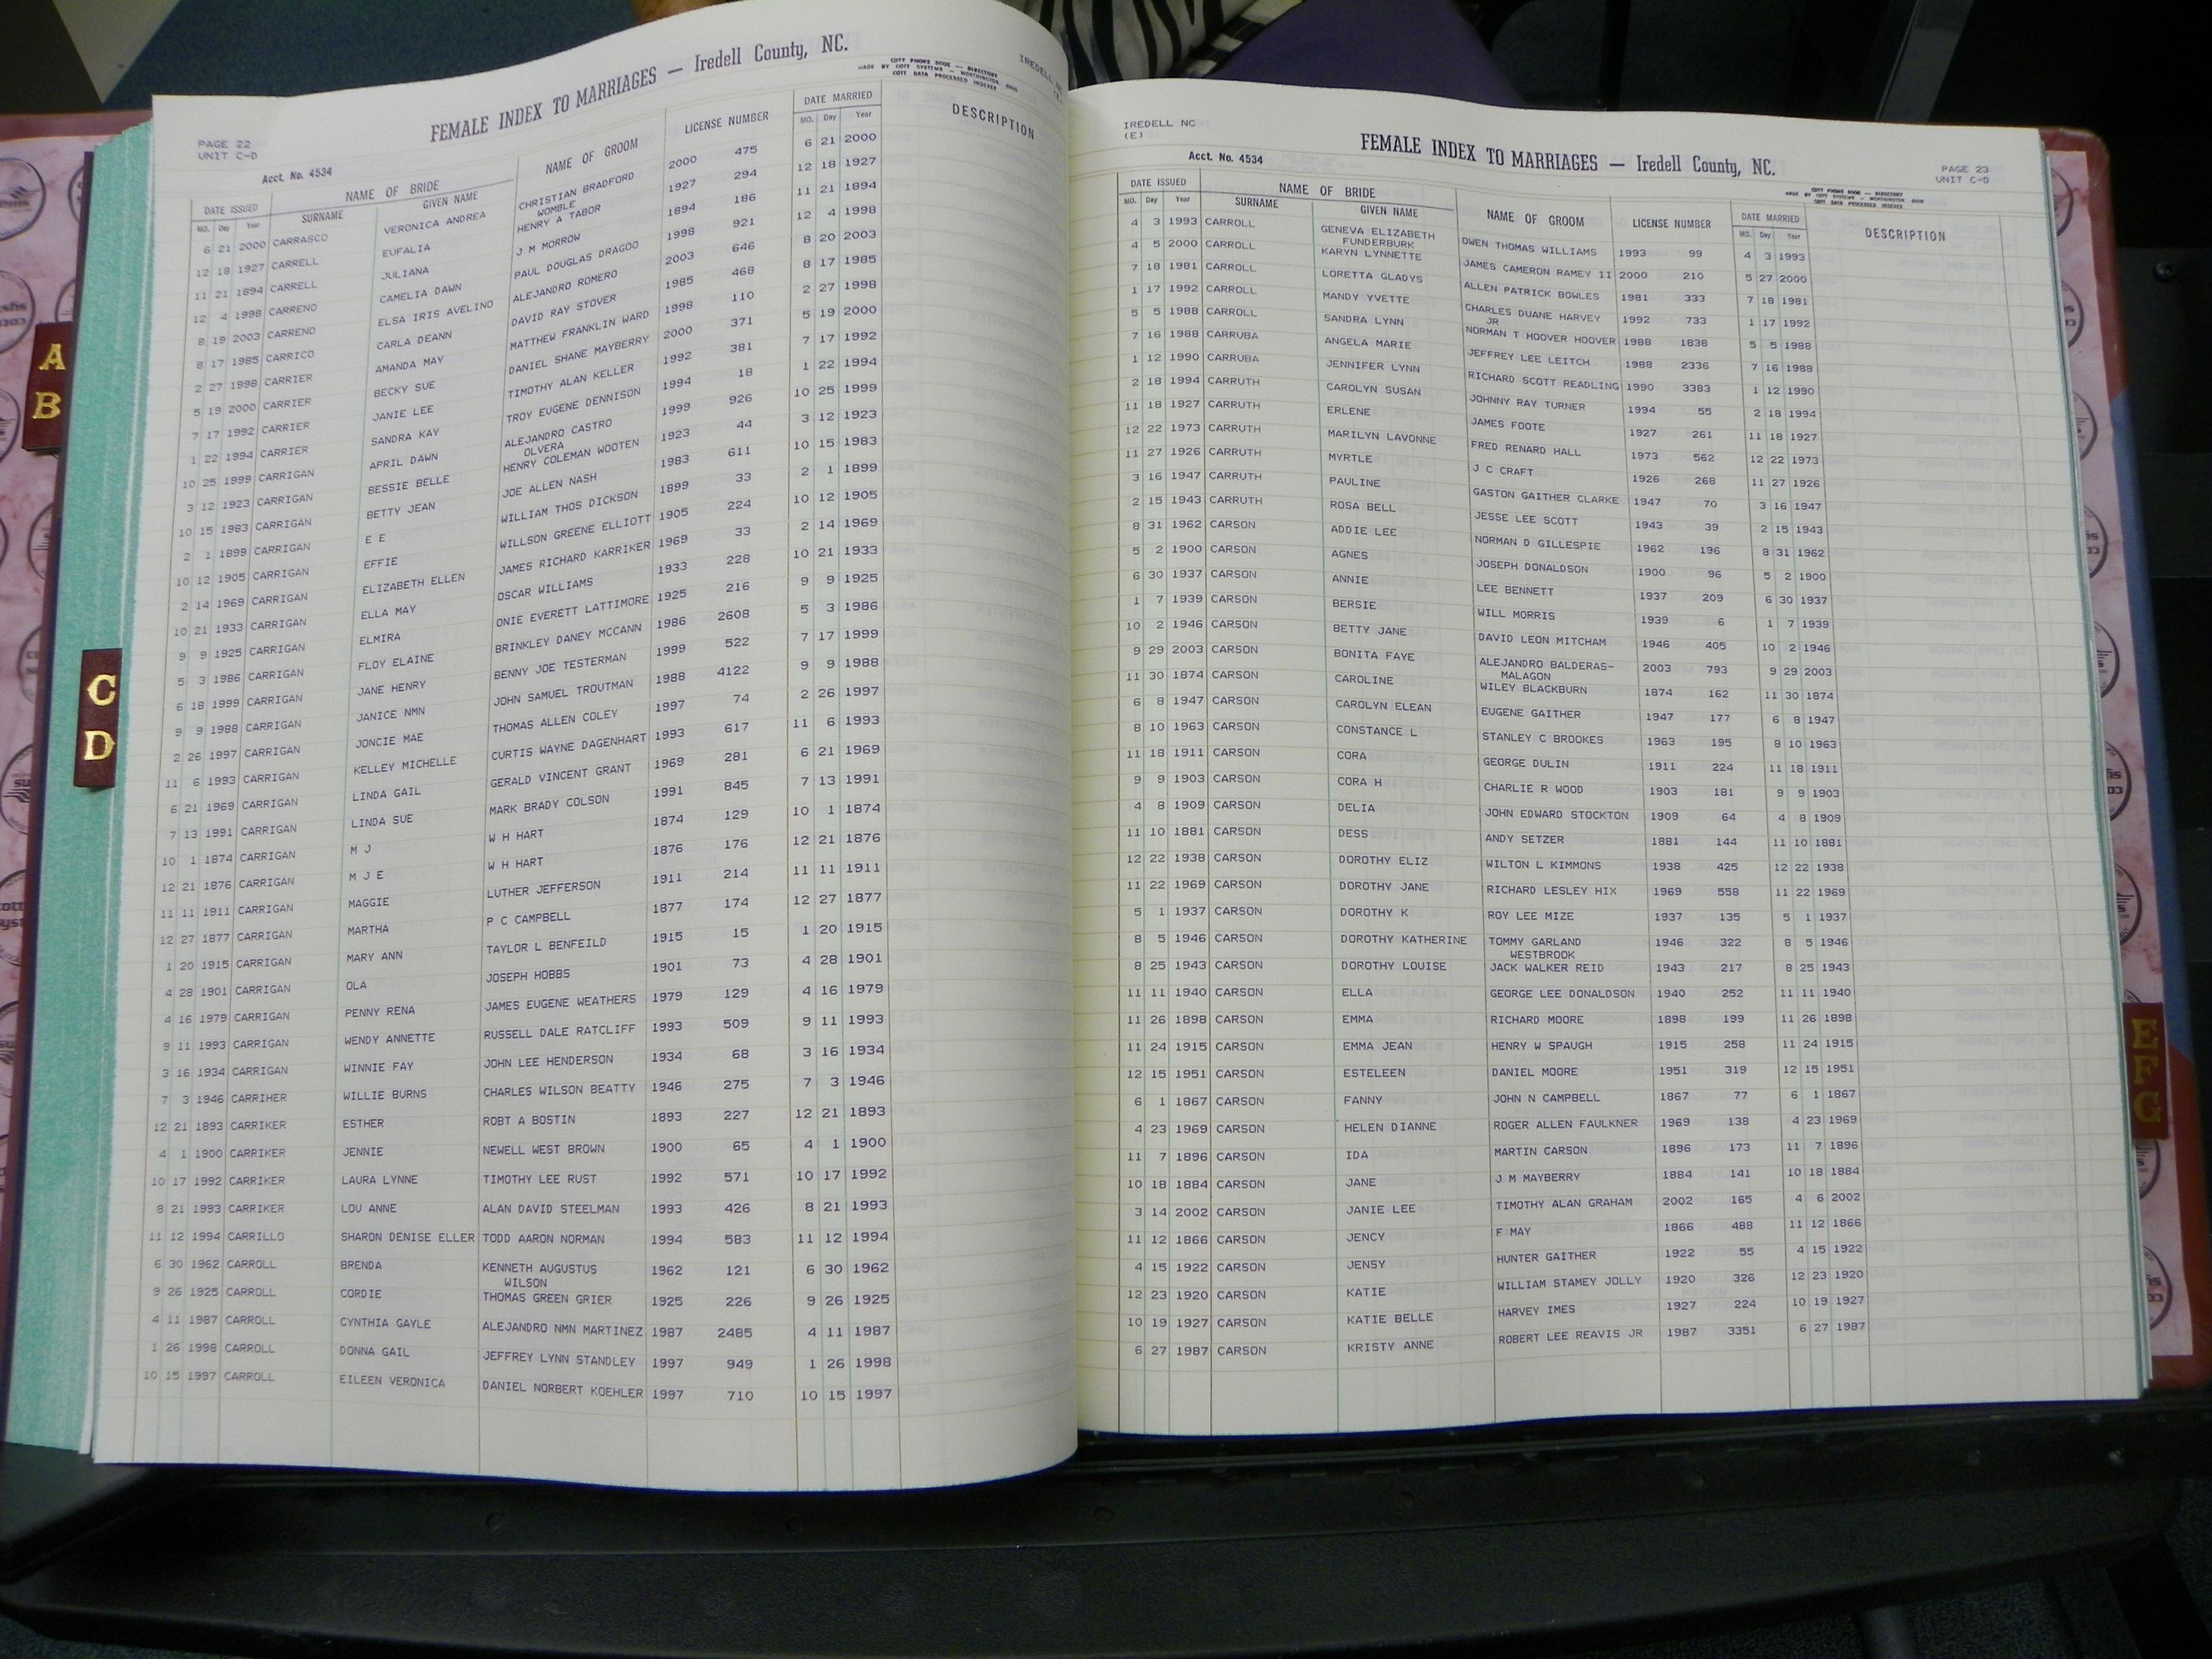 FEMALE INDEX TO MARRIAGES — Iredell County, NC.
PAGE 22
UNIT C-D
Acct. No. 4534
COTT PHONE BOOK — DIRECTORY
MADE BY COTT SYSTEMS — WORTHINGTON OHIO
COTT DATA PROCESSED INDEXES
IREDELL
DATE ISSUED NAME OF BRIDE NAME OF GROOM LICENSE NUMBER DATE MARRIED DESCRIPTION
MO. Day Year SURNAME GIVEN NAME MO. Day Year
6 21 2000 CARRASCO VERONICA ANDREA CHRISTIAN BRADFORD 2000 475 6 21 2000
WOMBLE
12 18 1927 CARRELL EUFALIA HENRY A TABOR 1927 294 12 18 1927
11 21 1894 CARRELL JULIANA J M MORROW 1894 186 11 21 1894
12 4 1998 CARRENO CAMELIA DAWN PAUL DOUGLAS DRAGOO 1998 921 12 4 1998
8 19 2003 CARRENO ELSA IRIS AVELINO ALEJANDRO ROMERO 2003 646 8 20 2003
8 17 1985 CARRICO CARLA DEANN DAVID RAY STOVER 1985 468 8 17 1985
2 27 1998 CARRIER AMANDA MAY MATTHEW FRANKLIN WARD 1998 110 2 27 1998
5 19 2000 CARRIER BECKY SUE DANIEL SHANE MAYBERRY 2000 371 5 19 2000
7 17 1992 CARRIER JANIE LEE TIMOTHY ALAN KELLER 1992 381 7 17 1992
1 22 1994 CARRIER SANDRA KAY TROY EUGENE DENNISON 1994 18 1 22 1994
10 25 1999 CARRIGAN APRIL DAWN ALEJANDRO CASTRO 1999 926 10 25 1999
OLVERA
3 12 1923 CARRIGAN BESSIE BELLE HENRY COLEMAN WOOTEN 1923 44 3 12 1923
10 15 1983 CARRIGAN BETTY JEAN JOE ALLEN NASH 1983 611 10 15 1983
2 1 1899 CARRIGAN E E WILLIAM THOS DICKSON 1899 33 2 1 1899
10 12 1905 CARRIGAN EFFIE WILLSON GREENE ELLIOTT 1905 224 10 12 1905
2 14 1969 CARRIGAN ELIZABETH ELLEN JAMES RICHARD KARRIKER 1969 33 2 14 1969
10 21 1933 CARRIGAN ELLA MAY OSCAR WILLIAMS 1933 228 10 21 1933
9 9 1925 CARRIGAN ELMIRA ONIE EVERETT LATTIMORE 1925 216 9 9 1925
5 3 1986 CARRIGAN FLOY ELAINE BRINKLEY DANEY MCCANN 1986 2608 5 3 1986
6 18 1999 CARRIGAN JANE HENRY BENNY JOE TESTERMAN 1999 522 7 17 1999
9 9 1988 CARRIGAN JANICE NMN JOHN SAMUEL TROUTMAN 1988 4122 9 9 1988
2 26 1997 CARRIGAN JONCIE MAE THOMAS ALLEN COLEY 1997 74 2 26 1997
11 6 1993 CARRIGAN KELLEY MICHELLE CURTIS WAYNE DAGENHART 1993 617 11 6 1993
6 21 1969 CARRIGAN LINDA GAIL GERALD VINCENT GRANT 1969 281 6 21 1969
7 13 1991 CARRIGAN LINDA SUE MARK BRADY COLSON 1991 845 7 13 1991
10 1 1874 CARRIGAN M J W H HART 1874 129 10 1 1874
12 21 1876 CARRIGAN M J E W H HART 1876 176 12 21 1876
11 11 1911 CARRIGAN MAGGIE LUTHER JEFFERSON 1911 214 11 11 1911
12 27 1877 CARRIGAN MARTHA P C CAMPBELL 1877 174 12 27 1877
1 20 1915 CARRIGAN MARY ANN TAYLOR L BENFEILD 1915 15 1 20 1915
4 28 1901 CARRIGAN OLA JOSEPH HOBBS 1901 73 4 28 1901
4 16 1979 CARRIGAN PENNY RENA JAMES EUGENE WEATHERS 1979 129 4 16 1979
9 11 1993 CARRIGAN WENDY ANNETTE RUSSELL DALE RATCLIFF 1993 509 9 11 1993
3 16 1934 CARRIGAN WINNIE FAY JOHN LEE HENDERSON 1934 68 3 16 1934
7 3 1946 CARRIHER WILLIE BURNS CHARLES WILSON BEATTY 1946 275 7 3 1946
12 21 1893 CARRIKER ESTHER ROBT A BOSTIN 1893 227 12 21 1893
4 1 1900 CARRIKER JENNIE NEWELL WEST BROWN 1900 65 4 1 1900
10 17 1992 CARRIKER LAURA LYNNE TIMOTHY LEE RUST 1992 571 10 17 1992
8 21 1993 CARRIKER LOU ANNE ALAN DAVID STEELMAN 1993 426 8 21 1993
11 12 1994 CARRILLO SHARON DENISE ELLER TODD AARON NORMAN 1994 583 11 12 1994
6 30 1962 CARROLL BRENDA KENNETH AUGUSTUS 1962 121 6 30 1962
WILSON
9 26 1925 CARROLL CORDIE THOMAS GREEN GRIER 1925 226 9 26 1925
4 11 1987 CARROLL CYNTHIA GAYLE ALEJANDRO NMN MARTINEZ 1987 2485 4 11 1987
1 26 1998 CARROLL DONNA GAIL JEFFREY LYNN STANDLEY 1997 949 1 26 1998
10 15 1997 CARROLL EILEEN VERONICA DANIEL NORBERT KOEHLER 1997 710 10 15 1997
IREDELL NC
(E)
FEMALE INDEX TO MARRIAGES — Iredell County, NC.
Acct. No. 4534
PAGE 23
UNIT C-D
COTT PHONE BOOK — DIRECTORY
MADE BY COTT SYSTEMS — WORTHINGTON OHIO
COTT DATA PROCESSED INDEXES
DATE ISSUED NAME OF BRIDE NAME OF GROOM LICENSE NUMBER DATE MARRIED DESCRIPTION
MO. Day Year SURNAME GIVEN NAME MO. Day Year
4 3 1993 CARROLL GENEVA ELIZABETH OWEN THOMAS WILLIAMS 1993 99 4 3 1993
FUNDERBURK
4 5 2000 CARROLL KARYN LYNNETTE JAMES CAMERON RAMEY II 2000 210 5 27 2000
7 18 1981 CARROLL LORETTA GLADYS ALLEN PATRICK BOWLES 1981 333 7 18 1981
1 17 1992 CARROLL MANDY YVETTE CHARLES DUANE HARVEY 1992 733 1 17 1992
JR
5 5 1988 CARROLL SANDRA LYNN NORMAN T HOOVER HOOVER 1988 1838 5 5 1988
7 16 1988 CARRUBA ANGELA MARIE JEFFREY LEE LEITCH 1988 2336 7 16 1988
1 12 1990 CARRUBA JENNIFER LYNN RICHARD SCOTT READLING 1990 3383 1 12 1990
2 18 1994 CARRUTH CAROLYN SUSAN JOHNNY RAY TURNER 1994 55 2 18 1994
11 18 1927 CARRUTH ERLENE JAMES FOOTE 1927 261 11 18 1927
12 22 1973 CARRUTH MARILYN LAVONNE FRED RENARD HALL 1973 562 12 22 1973
11 27 1926 CARRUTH MYRTLE J C CRAFT 1926 268 11 27 1926
3 16 1947 CARRUTH PAULINE GASTON GAITHER CLARKE 1947 70 3 16 1947
2 15 1943 CARRUTH ROSA BELL JESSE LEE SCOTT 1943 39 2 15 1943
8 31 1962 CARSON ADDIE LEE NORMAN D GILLESPIE 1962 196 8 31 1962
5 2 1900 CARSON AGNES JOSEPH DONALDSON 1900 96 5 2 1900
6 30 1937 CARSON ANNIE LEE BENNETT 1937 209 6 30 1937
1 7 1939 CARSON BERSIE WILL MORRIS 1939 6 1 7 1939
10 2 1946 CARSON BETTY JANE DAVID LEON MITCHAM 1946 405 10 2 1946
9 29 2003 CARSON BONITA FAYE ALEJANDRO BALDERAS- 2003 793 9 29 2003
MALAGON
11 30 1874 CARSON CAROLINE WILEY BLACKBURN 1874 162 11 30 1874
6 8 1947 CARSON CAROLYN ELEAN EUGENE GAITHER 1947 177 6 8 1947
8 10 1963 CARSON CONSTANCE L STANLEY C BROOKES 1963 195 8 10 1963
11 18 1911 CARSON CORA GEORGE DULIN 1911 224 11 18 1911
9 9 1903 CARSON CORA H CHARLIE R WOOD 1903 181 9 9 1903
4 8 1909 CARSON DELIA JOHN EDWARD STOCKTON 1909 64 4 8 1909
11 10 1881 CARSON DESS ANDY SETZER 1881 144 11 10 1881
12 22 1938 CARSON DOROTHY ELIZ WILTON L KIMMONS 1938 425 12 22 1938
11 22 1969 CARSON DOROTHY JANE RICHARD LESLEY HIX 1969 558 11 22 1969
5 1 1937 CARSON DOROTHY K ROY LEE MIZE 1937 135 5 1 1937
8 5 1946 CARSON DOROTHY KATHERINE TOMMY GARLAND 1946 322 8 5 1946
WESTBROOK
8 25 1943 CARSON DOROTHY LOUISE JACK WALKER REID 1943 217 8 25 1943
11 11 1940 CARSON ELLA GEORGE LEE DONALDSON 1940 252 11 11 1940
11 26 1898 CARSON EMMA RICHARD MOORE 1898 199 11 26 1898
11 24 1915 CARSON EMMA JEAN HENRY W SPAUGH 1915 258 11 24 1915
12 15 1951 CARSON ESTELEEN DANIEL MOORE 1951 319 12 15 1951
6 1 1867 CARSON FANNY JOHN N CAMPBELL 1867 77 6 1 1867
4 23 1969 CARSON HELEN DIANNE ROGER ALLEN FAULKNER 1969 138 4 23 1969
11 7 1896 CARSON IDA MARTIN CARSON 1896 173 11 7 1896
10 18 1884 CARSON JANE J M MAYBERRY 1884 141 10 18 1884
3 14 2002 CARSON JANIE LEE TIMOTHY ALAN GRAHAM 2002 165 4 6 2002
11 12 1866 CARSON JENCY F MAY 1866 488 11 12 1866
4 15 1922 CARSON JENSY HUNTER GAITHER 1922 55 4 15 1922
12 23 1920 CARSON KATIE WILLIAM STAMEY JOLLY 1920 326 12 23 1920
10 19 1927 CARSON KATIE BELLE HARVEY IMES 1927 224 10 19 1927
6 27 1987 CARSON KRISTY ANNE ROBERT LEE REAVIS JR 1987 3351 6 27 1987
A
B
C
D
E
F
G